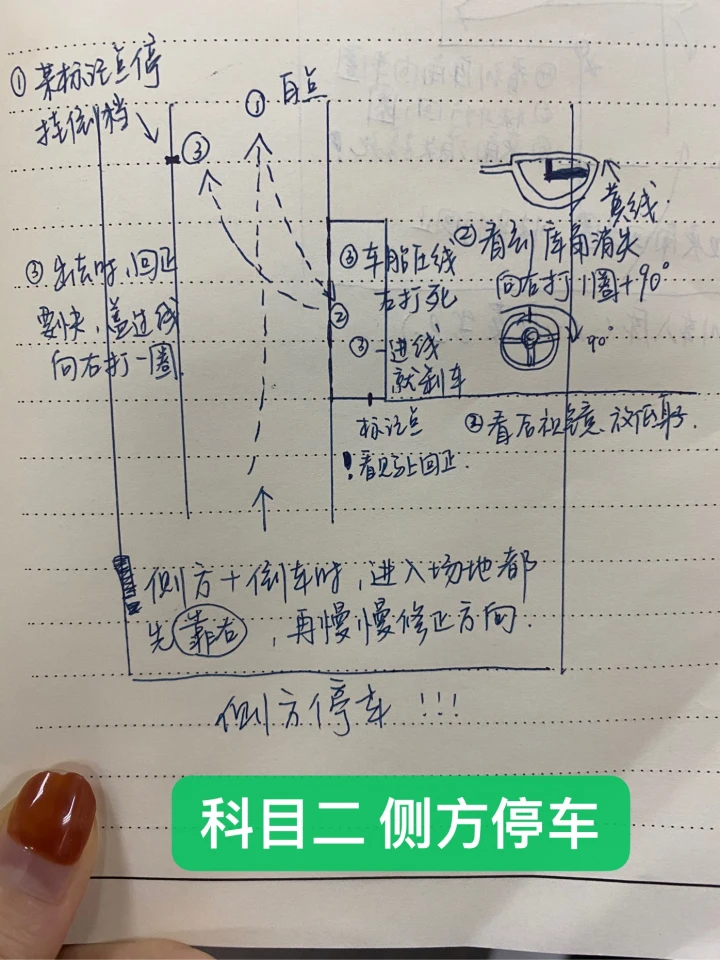 ① 某标记点停
挂倒档
① 百点
③
黄线
② 看到库角消失
向右打1圈+90°
90°
③ 车胎压线
右打死
②
③ 进线
就刹车
③ 出去时,回正
要快,盖过线
向右打一圈
标记点
! 看见马上回正.
② 看后视镜、放低身.
侧方+倒车时,进入场地都
先靠右,再慢慢修正方向.
侧方停车!!!
科目二 侧方停车